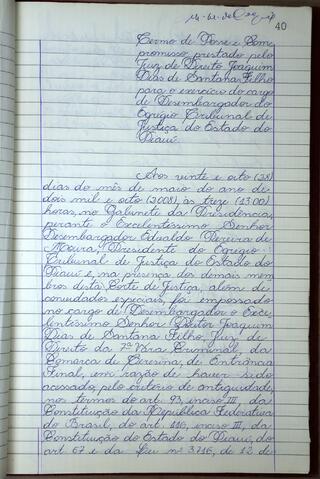 40
Termo de Posse e Com
promisso prestado pelo
Juiz de Direito Joaquim
Dias de Santana Filho
para o exercício do cargo
de Desembargador do
Egrégio Tribunal de
Justiça do Estado do
Piauí.
Aos vinte e oito (28)
dias do mês de maio do ano de
dois mil e oito (2008), às treze (13:00)
horas, no Gabinete da Presidência,
perante o Excelentíssimo Senhor
Desembargador Edvaldo Pereira de
Moura, Presidente do Egrégio
Tribunal de Justiça do Estado do
Piauí e, na presença dos demais mem
bros desta Corte de Justiça, além de
convidados especiais, foi empossado
no cargo de Desembargador o Exce
lentíssimo Senhor Doutor Joaquim
Dias de Santana Filho, Juiz de
Direito da 7ª Vara Criminal, da
Comarca de Teresina, de Entrância
Final, em razão de haver sido
acessado, pelo critério de antiguidade,
nos termos do art. 93, inciso III, da
Constituição da República Federativa
do Brasil, do art. 116, inciso III, da
Constituição do Estado do Piauí, do
art. 67 e da Lei nº 3.716, de 12 de